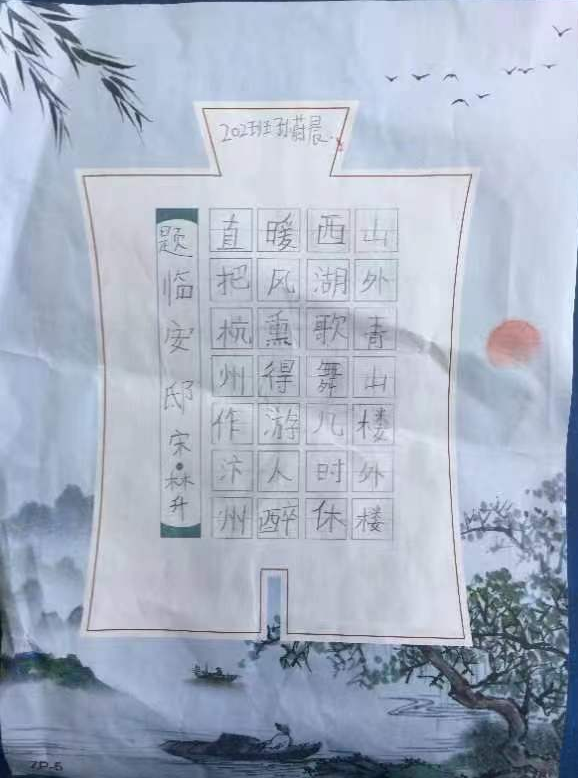 202班孙蔚晨
山外青山楼外楼
西湖歌舞几时休
暖风熏得游人醉
直把杭州作汴州
题临安邸 宋•林升
ZP-5